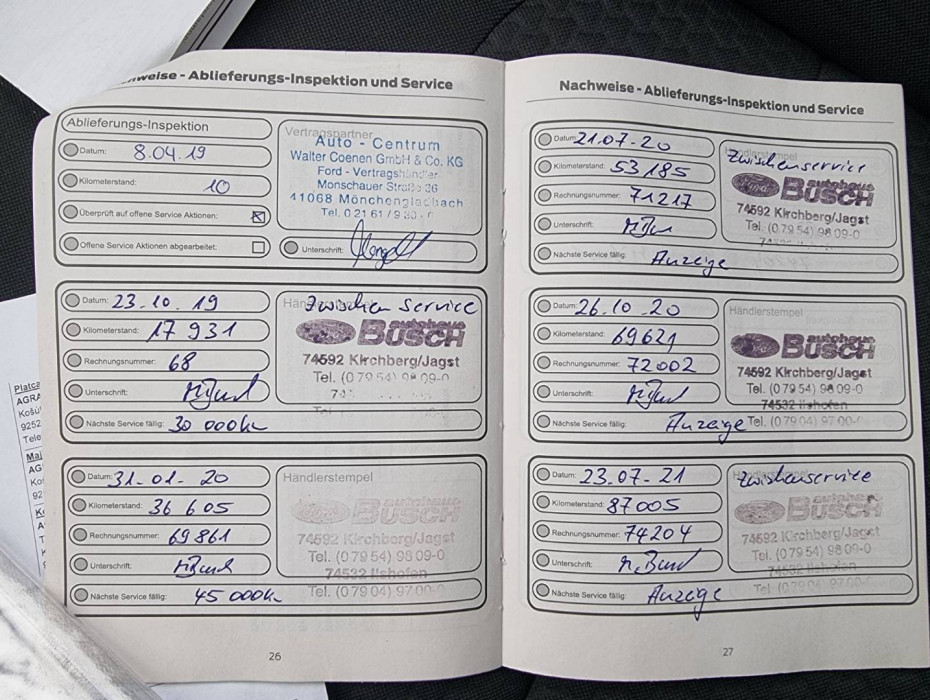 hweise - Ablieferungs-Inspektion und Service
Ablieferungs-Inspektion
Datum: 8.04.19
Kilometerstand: 10
Überprüft auf offene Service Aktionen:
Offene Service Aktionen abgearbeitet:
Vertragspartner
Auto - Centrum
Walter Coenen GmbH & Co. KG
Ford - Vertragshändler
Monschauer Straße 36
41068 Mönchengladbach
Tel. 0 21 61 / 9 30 -
Unterschrift:
Datum: 23.10.19
Kilometerstand: 17 931
Rechnungsnummer: 68
Unterschrift:
Nächste Service fällig: 30 000km
Händlerstempel
Zwischen Service
Ford autohaus
BUSCH
74592 Kirchberg/Jagst
Tel. (0 79 54) 98 09-0
Datum: 31-01-20
Kilometerstand: 36 605
Rechnungsnummer: 69861
Unterschrift:
Nächste Service fällig: 45 000km
Händlerstempel
autohaus
BUSCH
74592 Kirchberg/Jagst
Tel. (0 79 54) 98 09-0
74532 Ilshofen
Tel. (0 79 04) 97 00-
26
Nachweise - Ablieferungs-Inspektion und Service
Datum: 21.07.20
Kilometerstand: 53 185
Rechnungsnummer: 71217
Unterschrift:
Nächste Service fällig: Anzeige
Händlerstempel
Zwischenservice
Ford autohaus
BUSCH
74592 Kirchberg/Jagst
Tel. (0 79 54) 98 09-0
Datum: 26.10.20
Kilometerstand: 69621
Rechnungsnummer: 72002
Unterschrift:
Nächste Service fällig: Anzeige
Händlerstempel
Ford autohaus
BUSCH
74592 Kirchberg/Jagst
Tel. (0 79 54) 98 09-0
74532 Ilshofen
Tel. (0 79 04) 97 00-
Datum: 23.07.21
Kilometerstand: 87005
Rechnungsnummer: 74204
Unterschrift:
Nächste Service fällig: Anzeige
Zwischenservice
autohaus
BUSCH
74592 Kirchberg/Jagst
Tel. (0 79 54) 98 09-0
74532 Ilshofen
Tel. (0 79 04) 97 00-
27
AGRA
9252